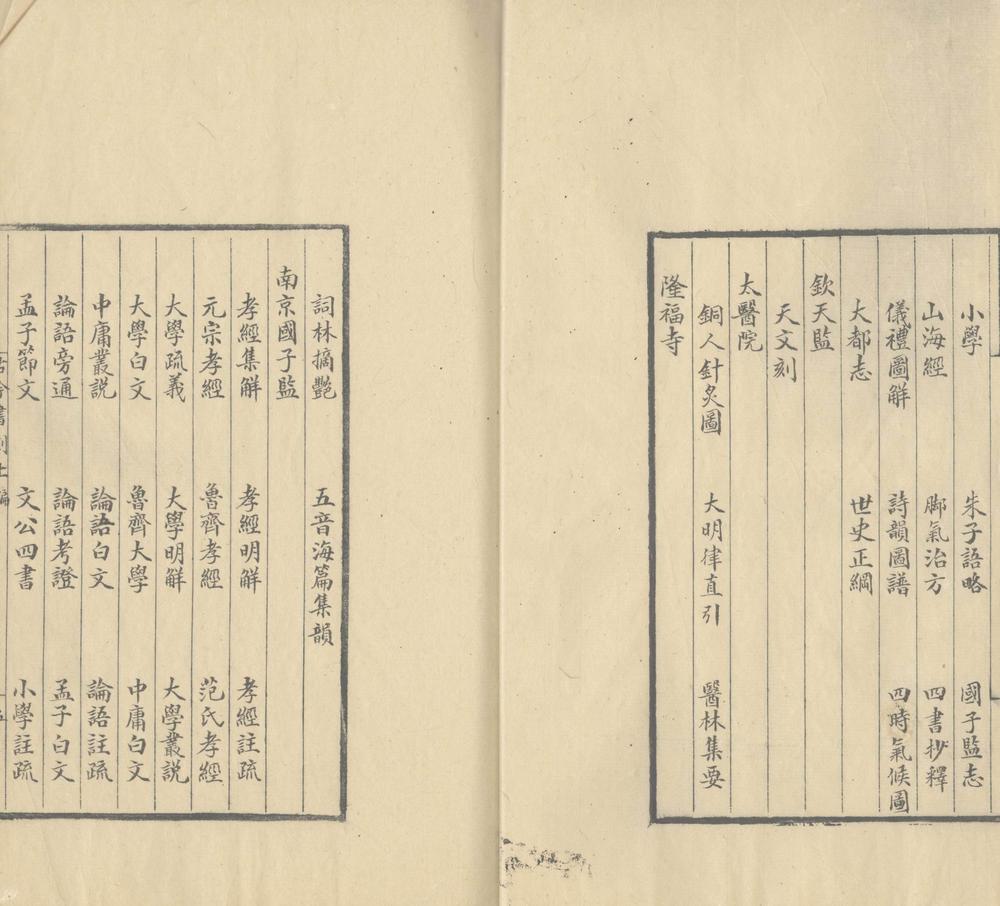 小學 朱子語略 國子監志
山海經 脚氣治方 四書抄釋
儀禮圖解 詩韻圖譜 四時氣候圖
大都志 世史正綱
欽天監
天文刻
太醫院
銅人針灸圖 大明律直引 醫林集要
隆福寺
詞林摘艷 五音海篇集韻
南京國子監
孝經集解 孝經明解 孝經註疏
元宗孝經 魯齊孝經 范氏孝經
大學疏義 大學明解 大學叢説
大學白文 魯齊大學 中庸白文
中庸叢説 論語白文 論語註疏
論語旁通 論語考證 孟子白文
孟子節文 文公四書 小學註疏